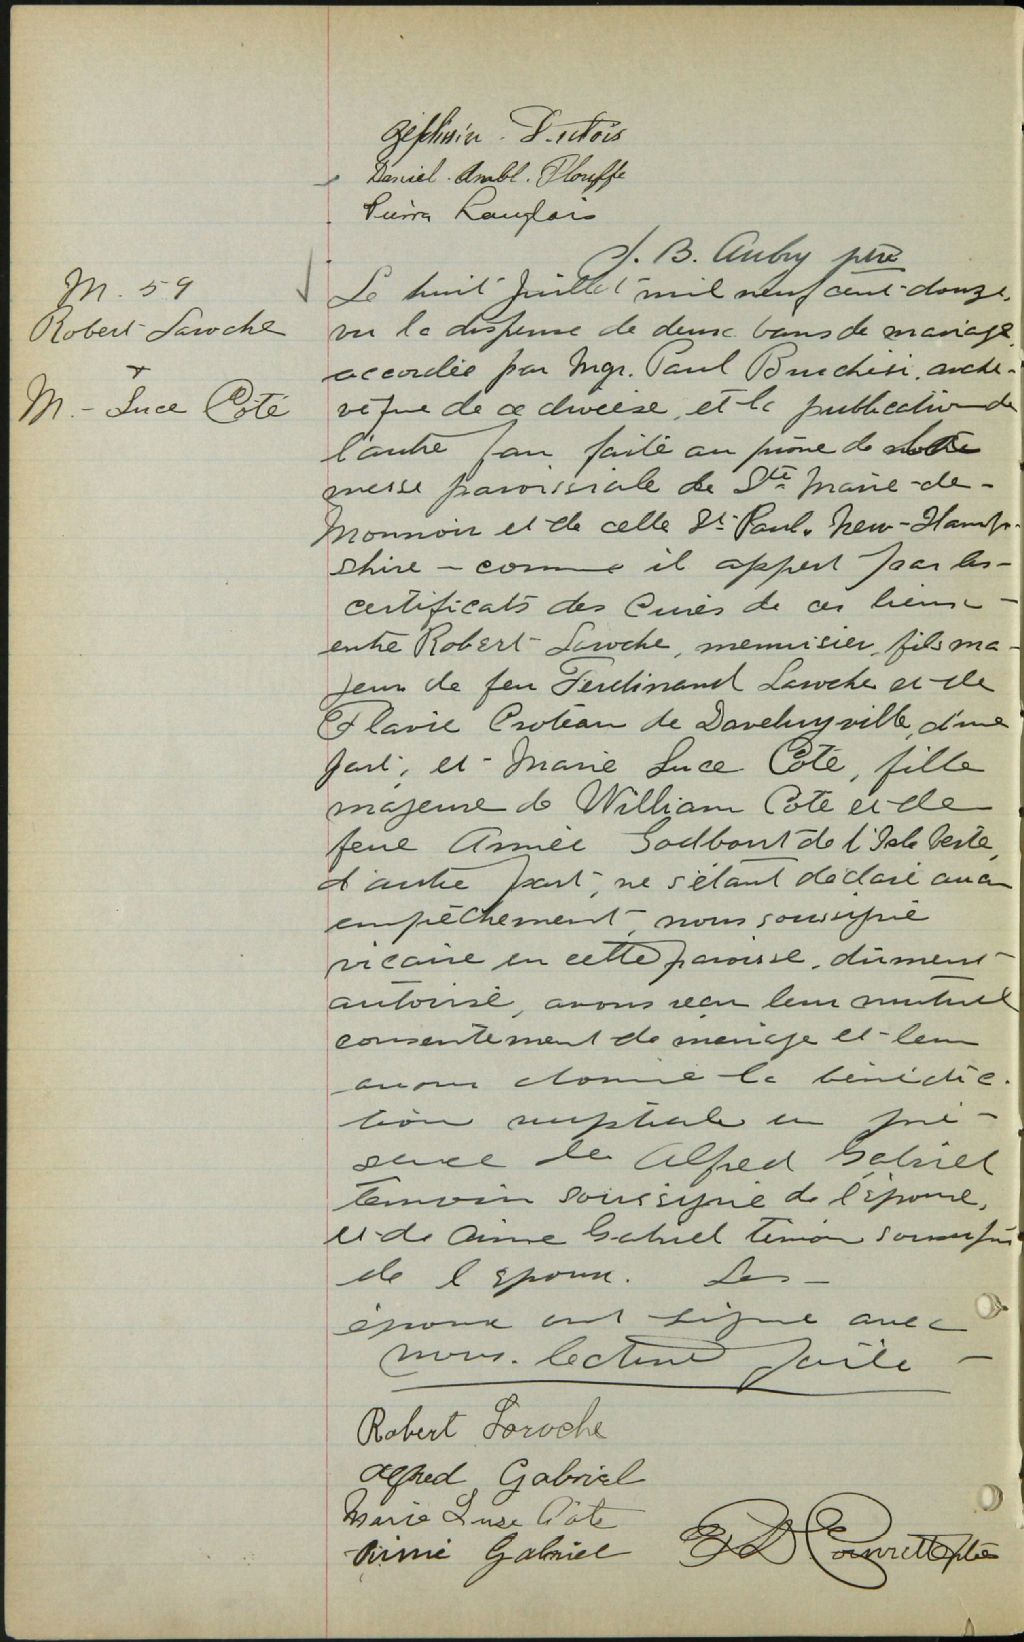 Zéphirin Dubois
Daniel Ambl. Plouffe
Pierre Langlois
J. B. Aubry ptre
M. 59
Robert Laroche
+
M. - Luce Côté
Le huit juillet mil neuf cent douze,
vu la dispense de deux bans de mariage,
accordée par Mgr. Paul Bruchési, arche-
vêque de ce diocèse, et la publication de
l'autre ban faite au prône de notre
messe paroissiale de Ste Marie-de-
Monnoir et de celle St Paul, New-Hamp-
shire - comme il appert par les -
certificats des Curés de ces lieux -
entre Robert Laroche, menuisier, fils ma-
jeur de feu Ferdinand Laroche et de
Flavie Croteau de Daveluyville, d'une
part, et Marie Luce Côté, fille
majeure de William Côté et de
feue Aimée Godbout de l'Isle Verte,
d'autre part, ne s'étant déclaré aucun
empêchement, nous soussigné
vicaire en cette paroisse, dûment
autorisé, avons reçu leur mutuel
consentement de mariage et leur
avons donné la bénédic-
tion nuptiale en pré-
sence de Alfred Gabriel
témoin soussigné de l'épouse,
et de Aimé Gabriel témoin soussigné
de l'époux. Les -
époux ont signé avec
nous. lecture faite -
Robert Laroche
Alfred Gabriel
Marie Luse Côte
Aimé Gabriel